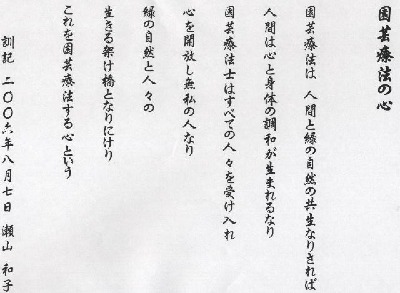 園芸療法の心
園芸療法は 人間と緑の自然の共生なりきれば
人間は心と身体の調和が生まれるなり
園芸療法士はすべての人々を受け入れ
心を開放し無私の人なり
緑の自然と人々の
生きる架け橋となりにけり
これを園芸療法する心という
訓記 二〇〇六年八月七日 瀬山 和子